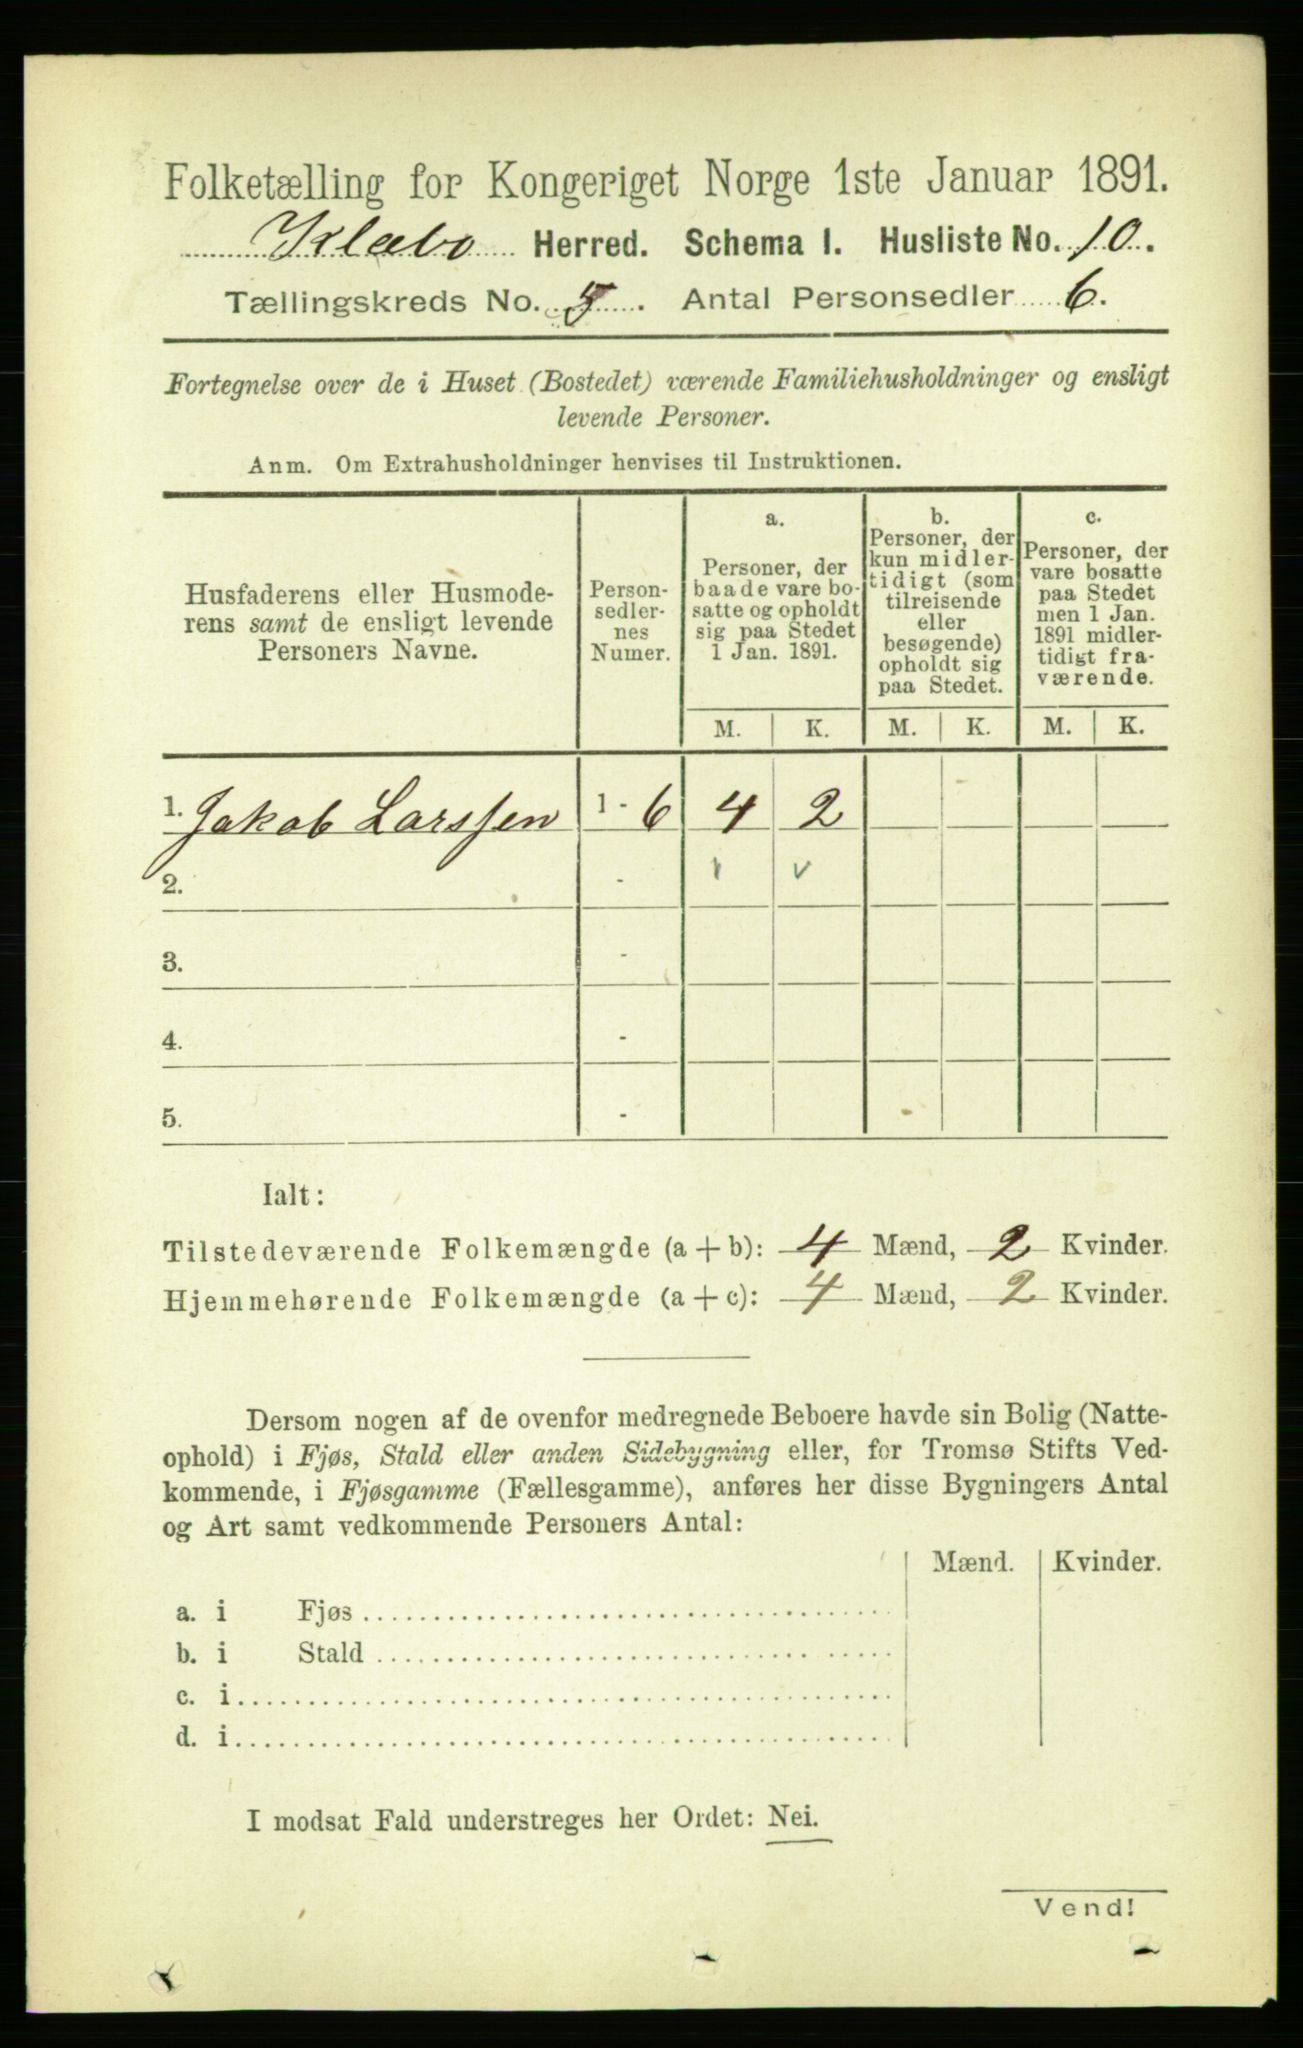 Folketælling for Kongeriget Norge 1ste Januar 1891.
Klæbo Herred. Schema I. Husliste No. 10.
Tællingskreds No. 5. Antal Personsedler 6.
Fortegnelse over de i Huset (Bostedet) værende Familiehusholdninger og ensligt
levende Personer.
Anm. Om Extrahusholdninger henvises til Instruktionen.
Husfaderens eller Husmode-
rens samt de ensligt levende
Personers Navne.
Person-
sedler-
nes
Numer.
a.
Personer, der
baade vare bo-
satte og opholdt
sig paa Stedet
1 Jan. 1891.
b.
Personer, der
kun midler-
tidigt (som
tilreisende
eller
besøgende)
opholdt sig
paa Stedet.
c.
Personer, der
vare bosatte
paa Stedet
men 1 Jan.
1891 midler-
tidigt fra-
værende.
M. K. M. K. M. K.
1. Jakob Larssen 1 - 6 4 2
2. - v v
3. -
4. -
5. -
Ialt:
Tilstedeværende Folkemængde (a + b): 4 Mænd, 2 Kvinder.
Hjemmehørende Folkemængde (a + c): 4 Mænd, 2 Kvinder.
Dersom nogen af de ovenfor medregnede Beboere havde sin Bolig (Natte-
ophold) i Fjøs, Stald eller anden Sidebygning eller, for Tromsø Stifts Ved-
kommende, i Fjøsgamme (Fællesgamme), anføres her disse Bygningers Antal
og Art samt vedkommende Personers Antal:
Mænd. Kvinder.
a. i Fjøs
b. i Stald
c. i
d. i
I modsat Fald understreges her Ordet: Nei.
Vend!